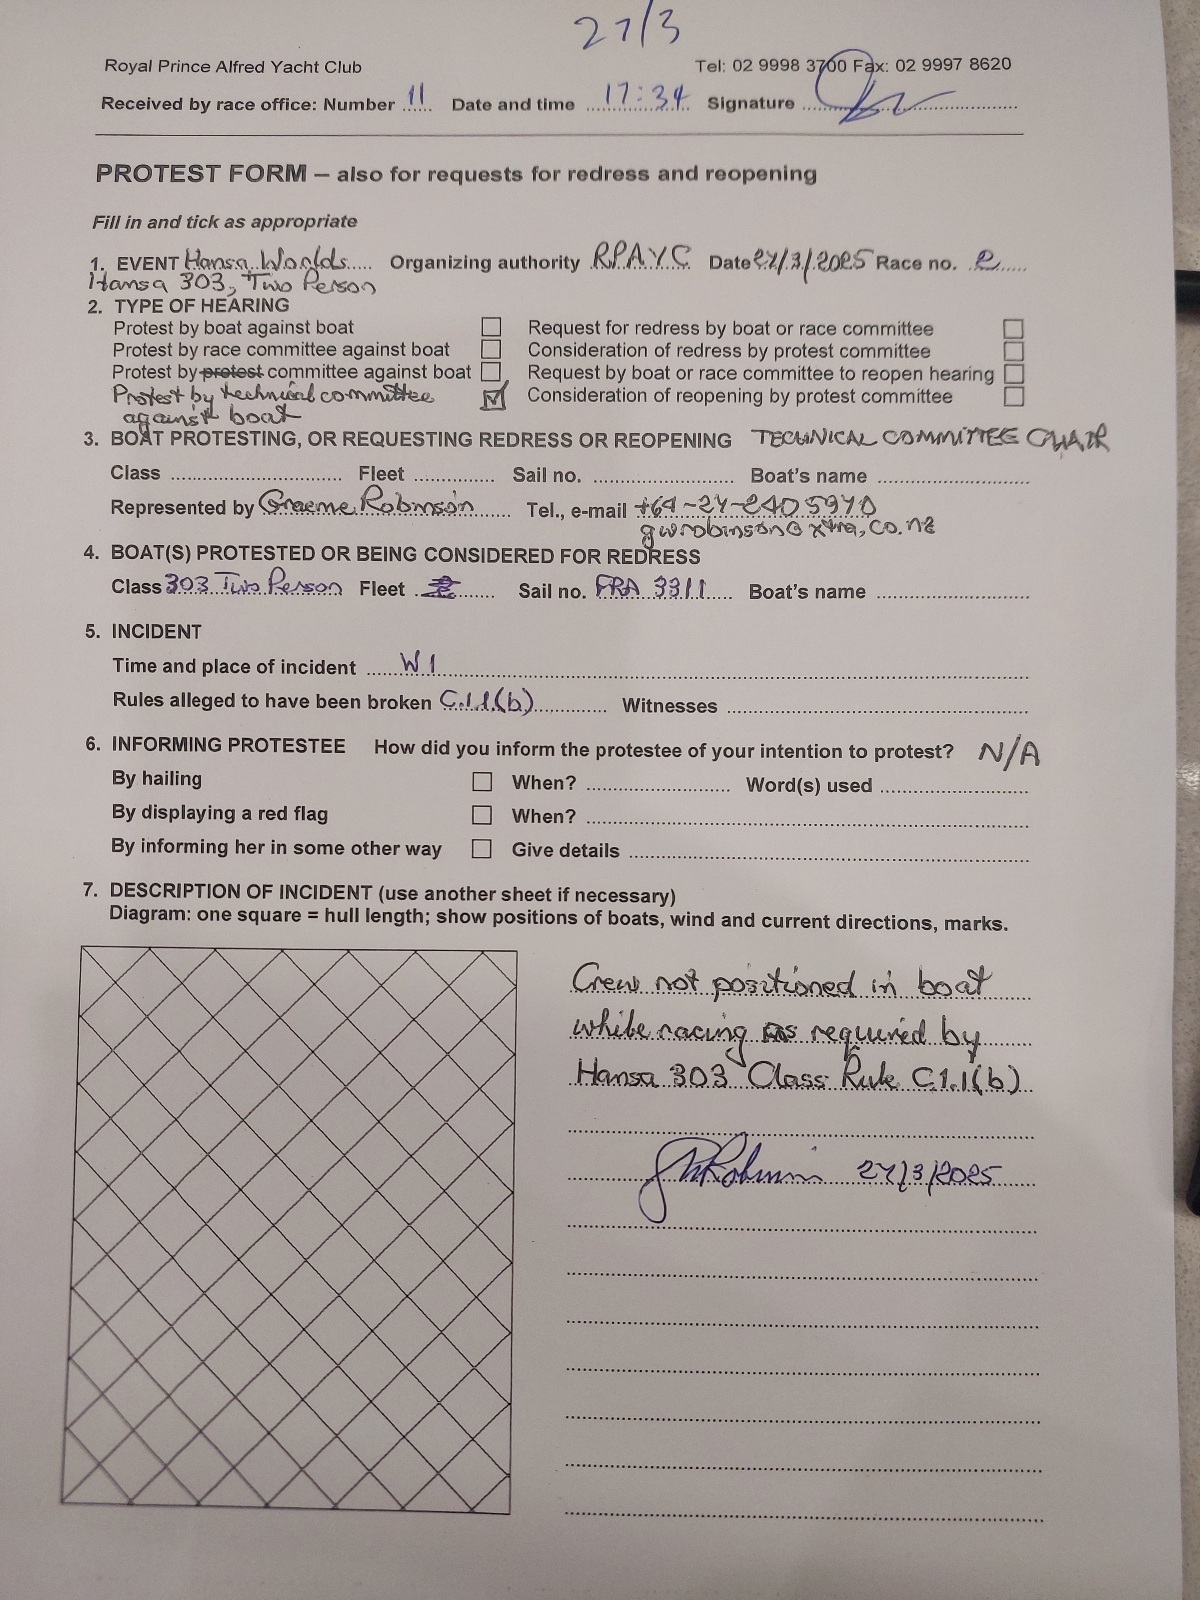 27/3
Royal Prince Alfred Yacht Club Tel: 02 9998 3700 Fax: 02 9997 8620
Received by race office: Number 11 Date and time 17:34 Signature
PROTEST FORM – also for requests for redress and reopening
Fill in and tick as appropriate
1. EVENT Hansa Worlds Organizing authority RPAYC Date 27/3/2025 Race no. 2
Hansa 303, Two Person
2. TYPE OF HEARING
Protest by boat against boat Request for redress by boat or race committee
Protest by race committee against boat Consideration of redress by protest committee
Protest by protest committee against boat Request by boat or race committee to reopen hearing
Protest by technical committee Consideration of reopening by protest committee
against boat
3. BOAT PROTESTING, OR REQUESTING REDRESS OR REOPENING TECHNICAL COMMITTEE CHAIR
Class Fleet Sail no. Boat's name
Represented by Graeme Robinson Tel., e-mail +64-27-2405970
gwrobinson@xtra.co.nz
4. BOAT(S) PROTESTED OR BEING CONSIDERED FOR REDRESS
Class 303 Two Person Fleet Sail no. FRA 3311 Boat's name
5. INCIDENT
Time and place of incident W1
Rules alleged to have been broken C.1.1(b) Witnesses
6. INFORMING PROTESTEE How did you inform the protestee of your intention to protest? N/A
By hailing When? Word(s) used
By displaying a red flag When?
By informing her in some other way Give details
7. DESCRIPTION OF INCIDENT (use another sheet if necessary)
Diagram: one square = hull length; show positions of boats, wind and current directions, marks.
Crew not positioned in boat
while racing as required by
Hansa 303 Class Rule C1.1(b)
27/3/2025